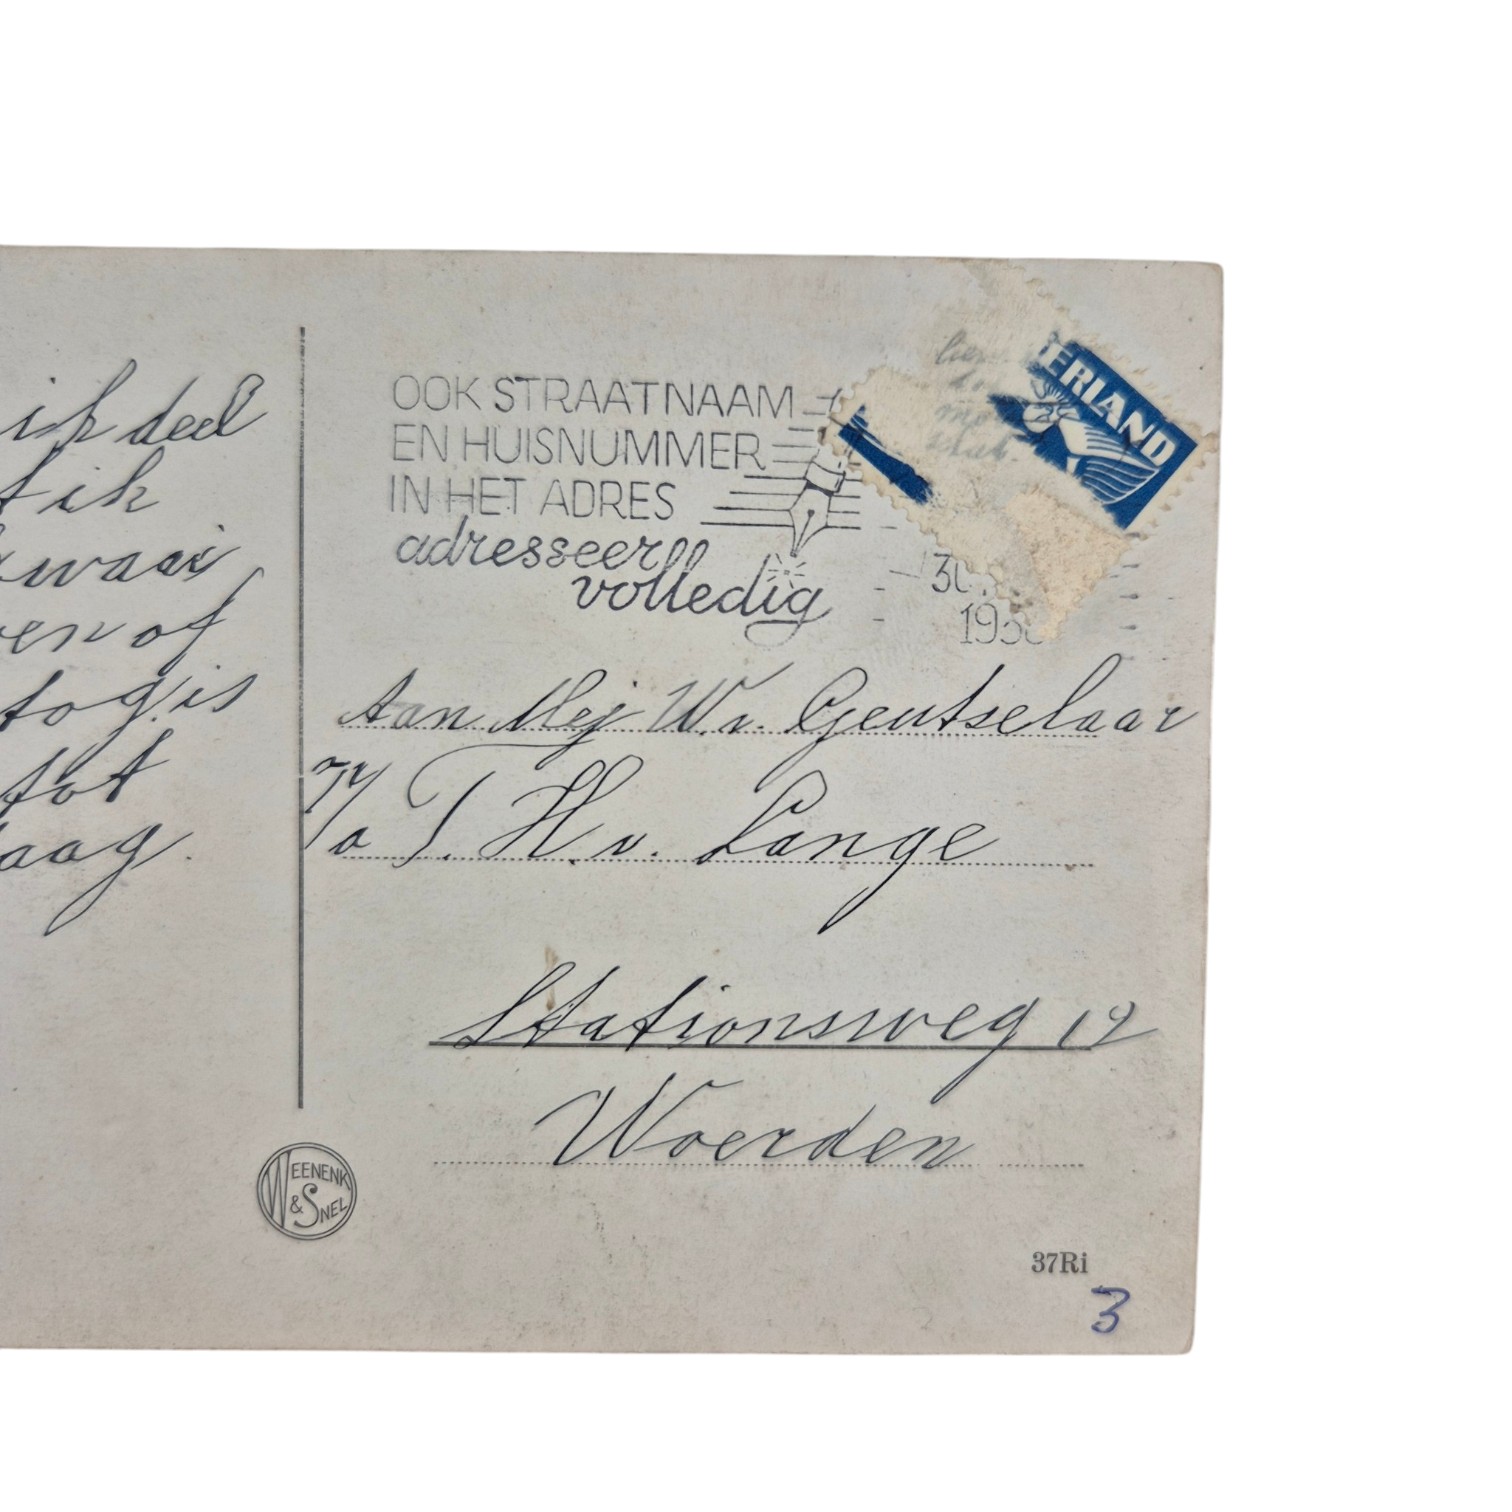 ik deel
ik
waar
of
is
tot
OOK STRAATNAAM
EN HUISNUMMER
IN HET ADRES
adresseer
volledig
ERLAND
30
195
Aan Mej W. v. Gentselaar
p/o T. H. v. Lange
Stationsweg 12
Woerden
WEENENK
& SNEL
37Ri
3